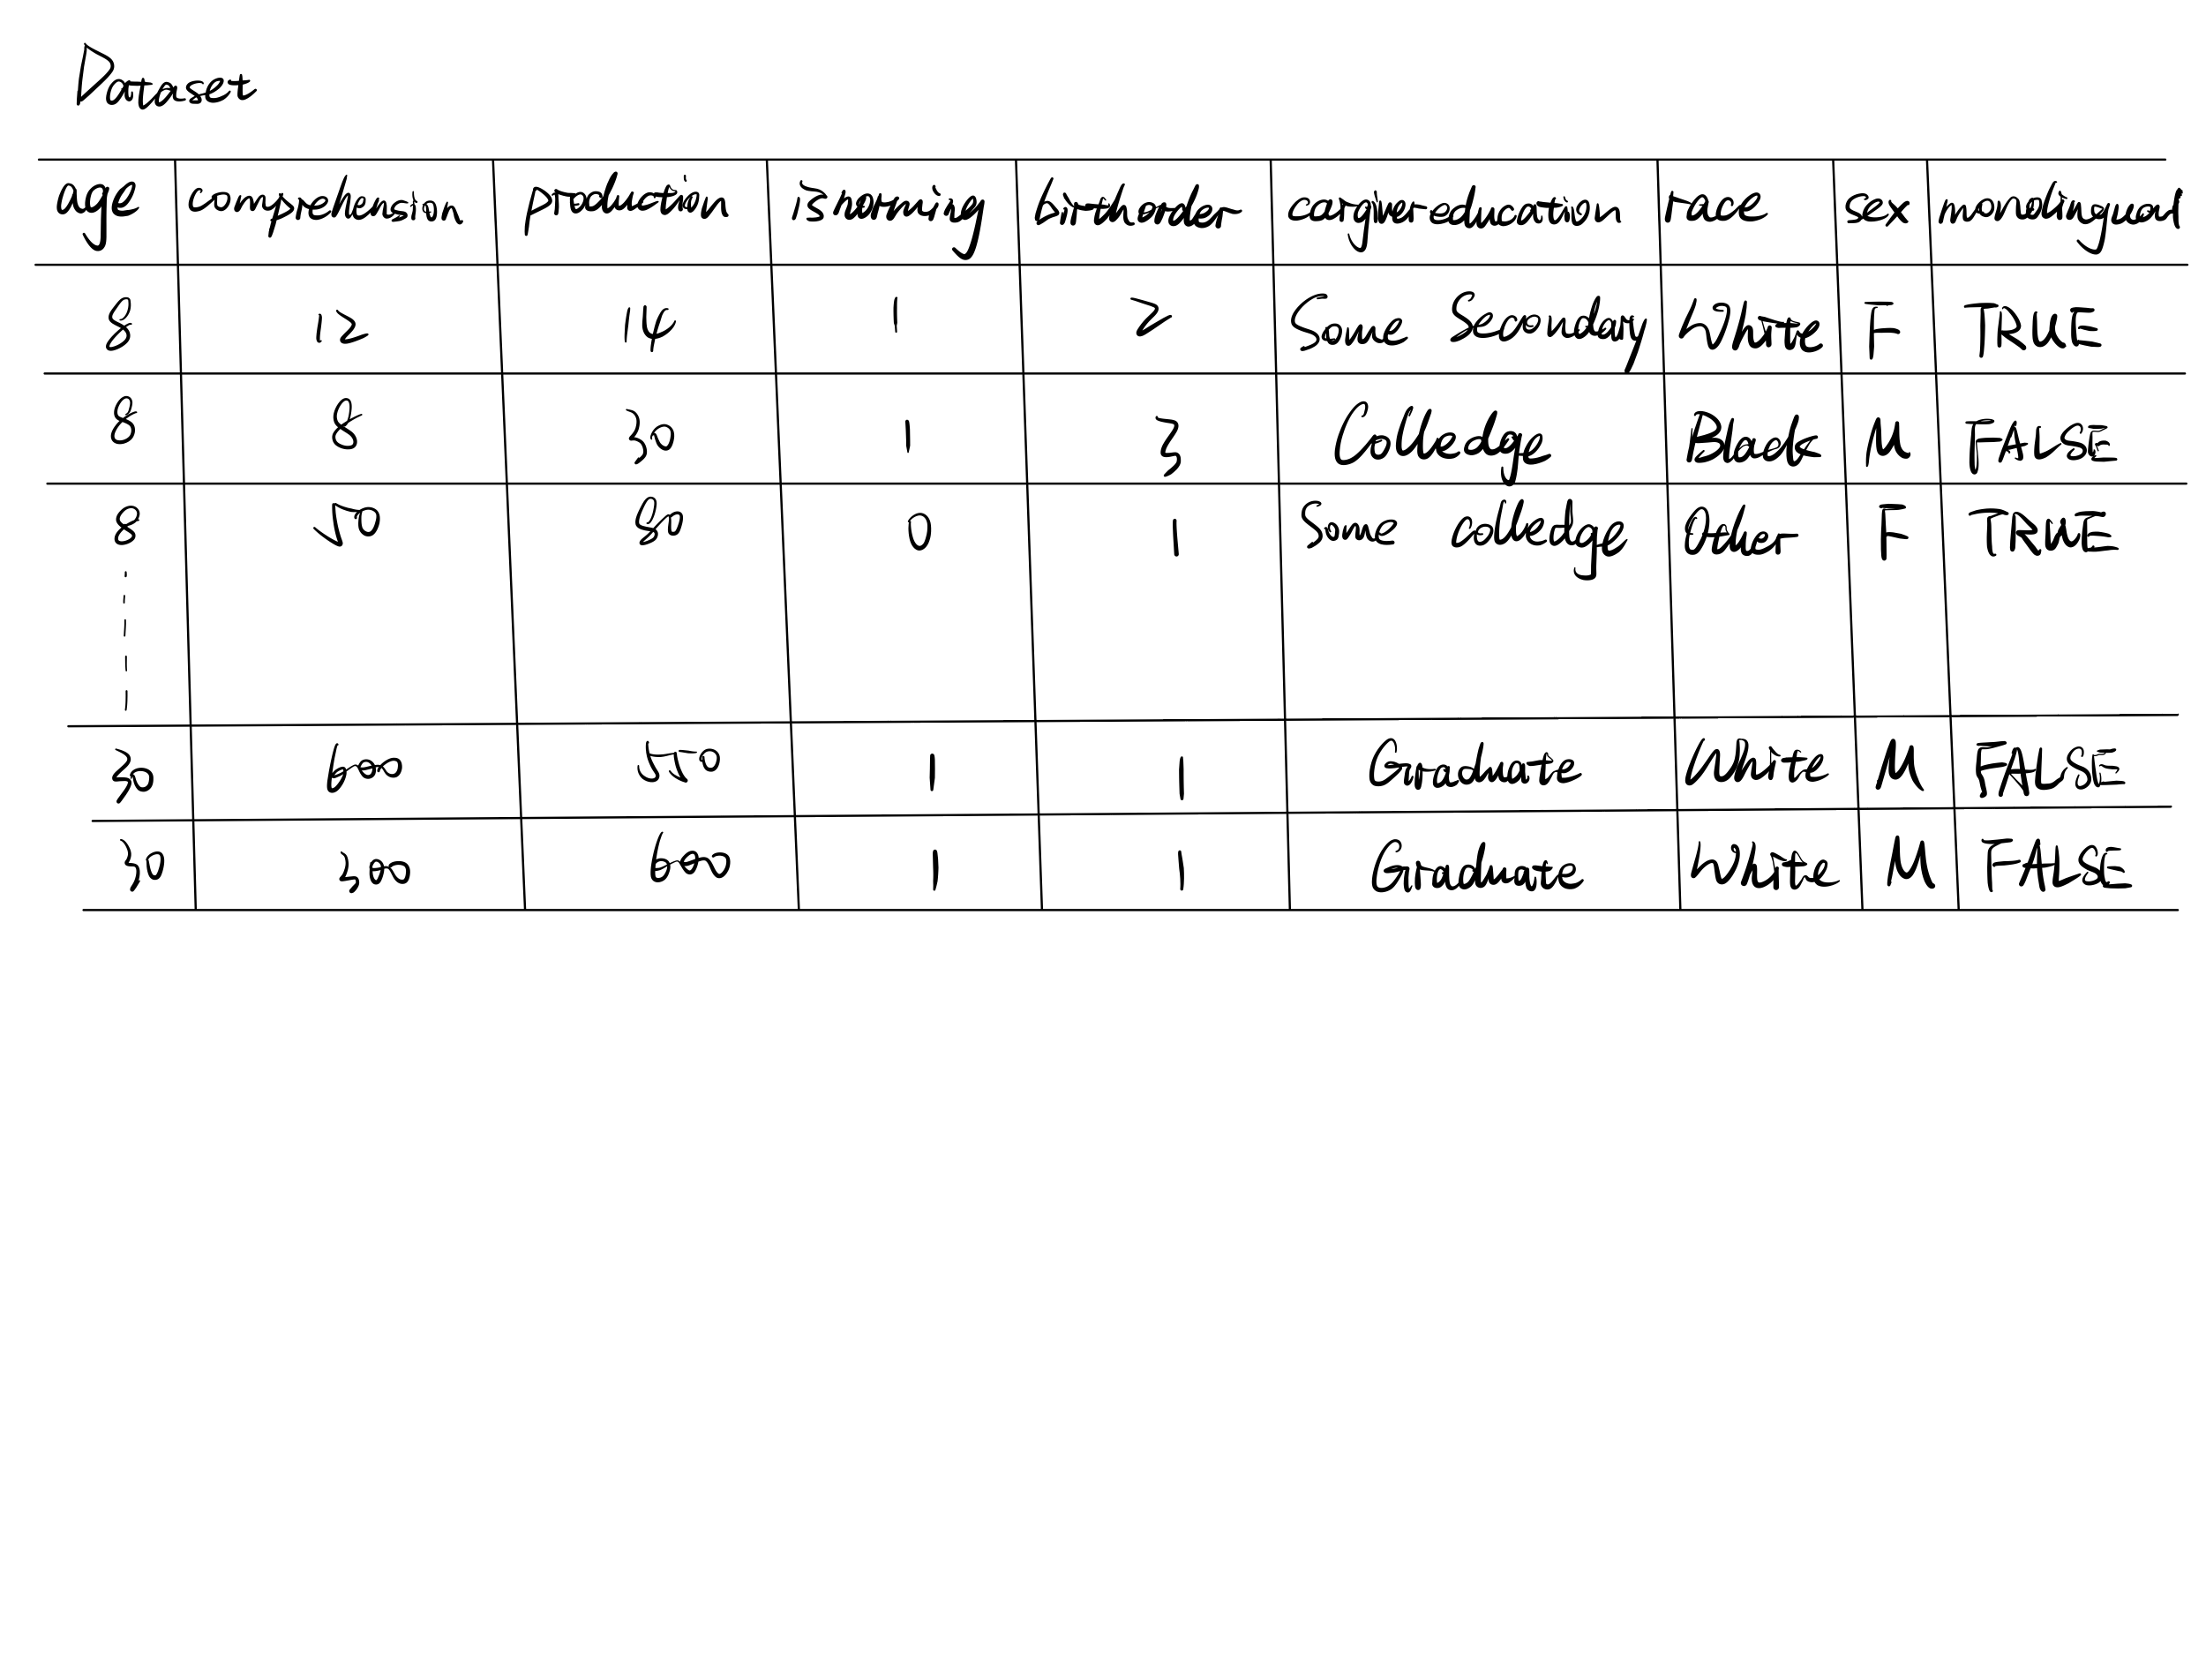 Dataset
age comprehension production isnorming birthorder caregivereducation race sex monolingual
8 12 14 1 2 Some Secondary White F TRUE
8 8 30 1 3 Colledge Black M FALSE
8 50 80 0 1 Some colledge Other F TRUE
30 600 550 1 1 Graduate White M FALSE
30 200 600 1 1 Graduate White M FALSE